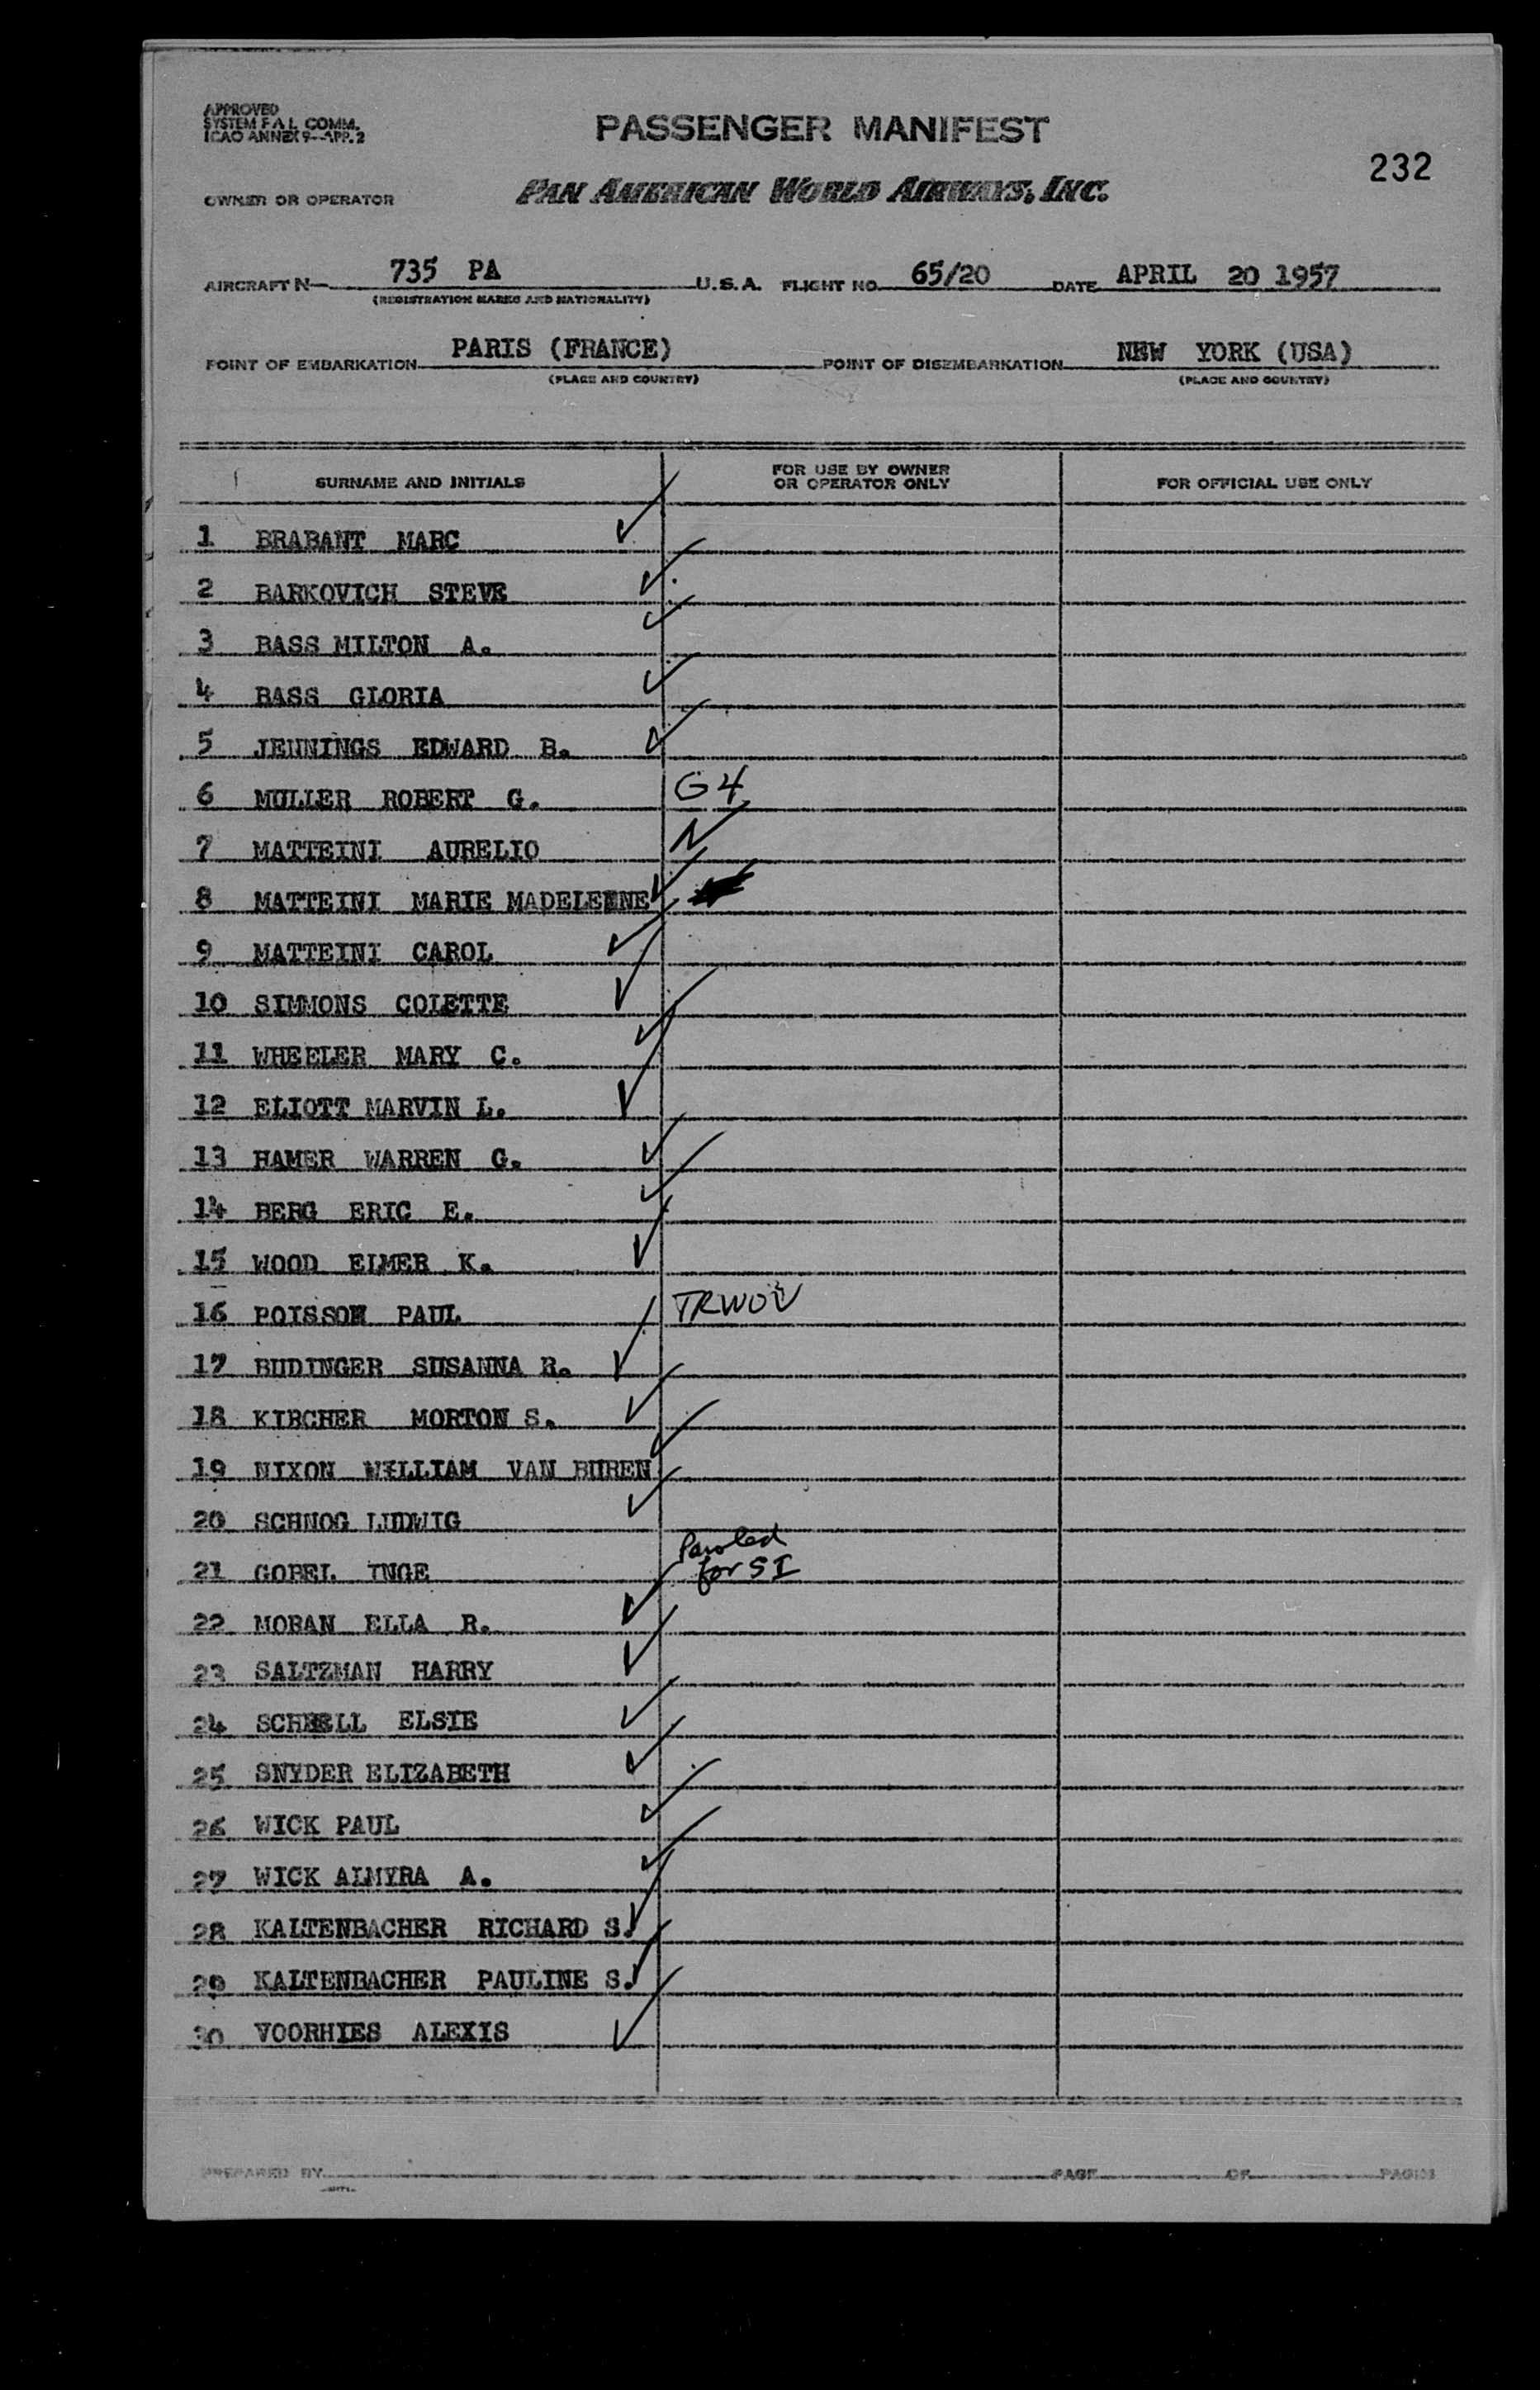 APPROVED
SYSTEM F.A.L. COMM.
ICAO ANNEX 9-APP. 2
PASSENGER MANIFEST
232
OWNER OR OPERATOR
PAN AMERICAN WORLD AIRWAYS, INC.
AIRCRAFT N- 735 PA U.S.A. FLIGHT NO. 65/20 DATE APRIL 20 1957
(REGISTRATION MARKS AND NATIONALITY)
POINT OF EMBARKATION PARIS (FRANCE) POINT OF DISEMBARKATION NEW YORK (USA)
(PLACE AND COUNTRY) (PLACE AND COUNTRY)
SURNAME AND INITIALS FOR USE BY OWNER OR OPERATOR ONLY FOR OFFICIAL USE ONLY
1 BRABANT MARC
2 BARKOVICH STEVE
3 BASS MILTON A.
4 BASS GLORIA
5 JENNINGS EDWARD B.
6 MULLER ROBERT G. G4
7 MATTEINI AURELIO
8 MATTEINI MARIE MADELEINE
9 MATTEINI CAROL
10 SIMMONS COLETTE
11 WHEELER MARY C.
12 ELIOTT MARVIN L.
13 HAMER WARREN G.
14 BERG ERIC E.
15 WOOD ELMER K.
16 POISSON PAUL TRWOV
17 BUDINGER SUSANNA R.
18 KIRCHER MORTON S.
19 NIXON WILLIAM VAN BUREN
20 SCHNOG LUDWIG
21 GOBEL INGE Paroled for SI
22 MORAN ELLA R.
23 SALTZMAN HARRY
24 SCHELL ELSIE
25 SNYDER ELIZABETH
26 WICK PAUL
27 WICK ALMYRA A.
28 KALTENBACHER RICHARD S.
29 KALTENBACHER PAULINE S.
30 VOORHIES ALEXIS
PREPARED BY PAGE OF PAGES